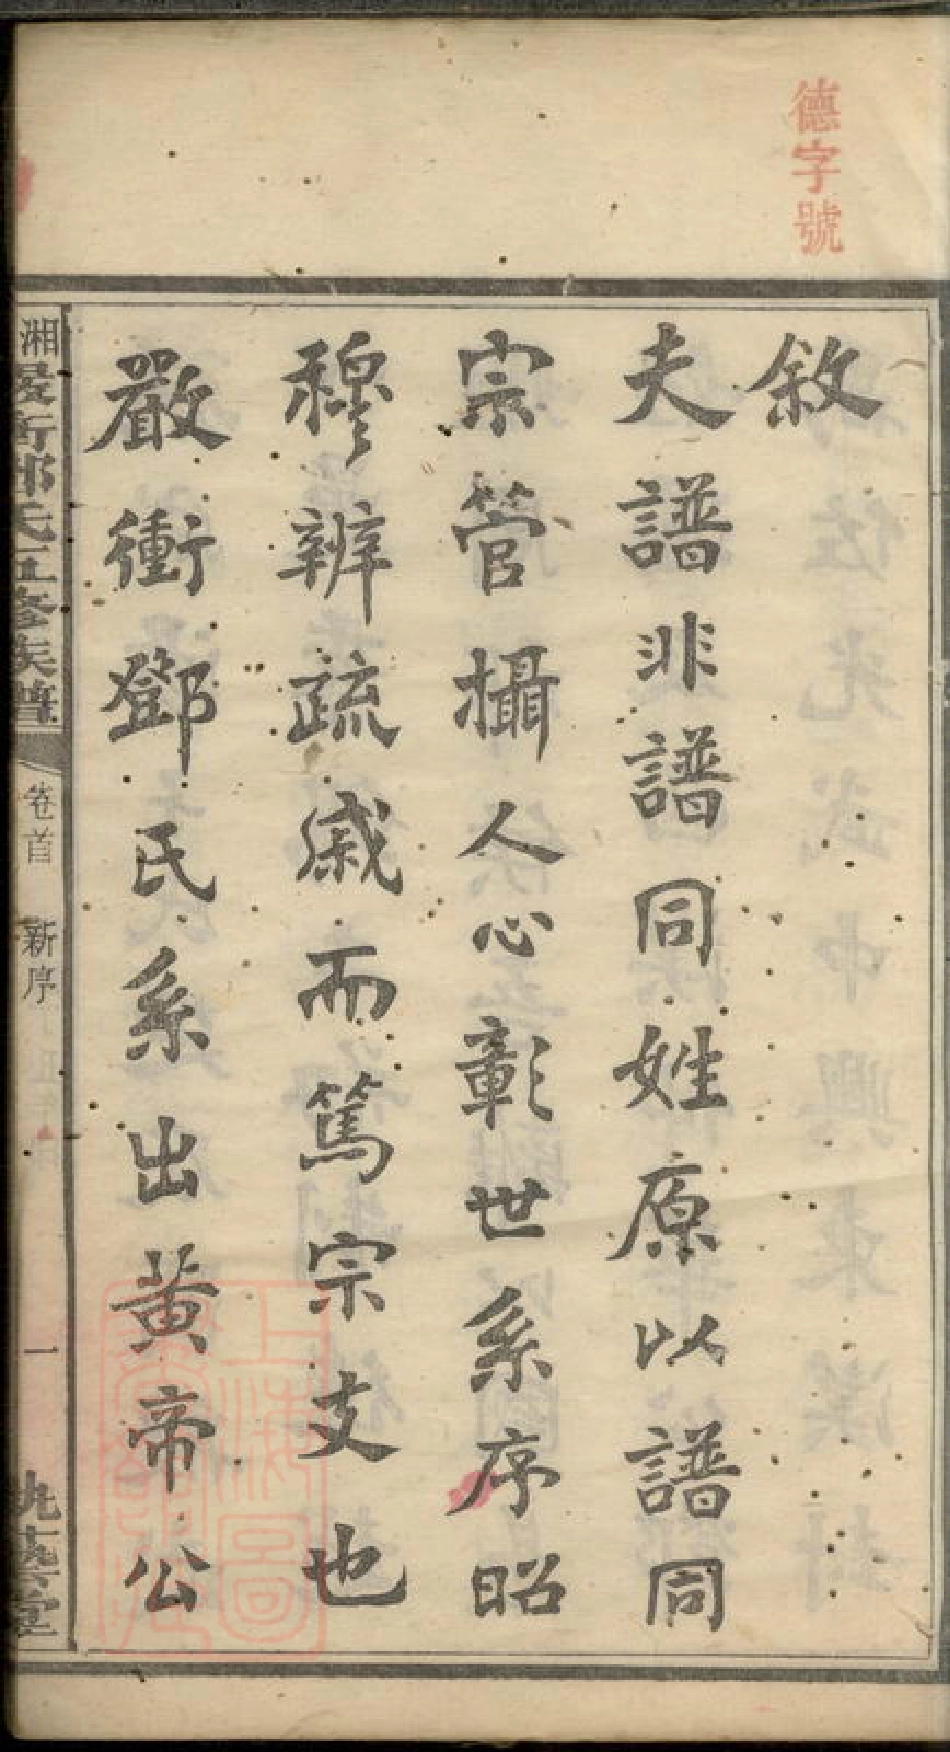 德字號
敘
夫譜非譜同姓原以譜同
宗管攝人心彰世系序昭
穆辨疏戚而篤宗支也
嚴衝鄧氏系出黃帝公
氏五修族譜
卷首 新序
一